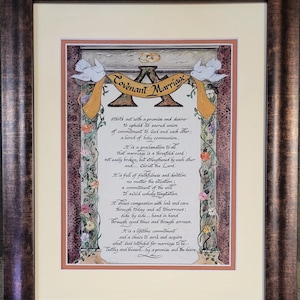 A
Covenant Marriage
starts not with a promise and desire
to uphold its sacred union
of commitment to God and each other
a bond of holy communion.
It is a proclamation to do
that marriage is a threefold cord;
not easily broken, but strengthened by each other
and... Christ the Lord.
It is full of faithfulness and devotion
no matter the situation;
a commitment of the will
to avoid unholy temptation.
It shows compassion with love and care
through today and all tomorrows;
side by side... hand in hand
through good times and through sorrows.
It is a lifetime commitment
and a choice to work and acquire
what God intended for marriage to be
by a promise and the desire.